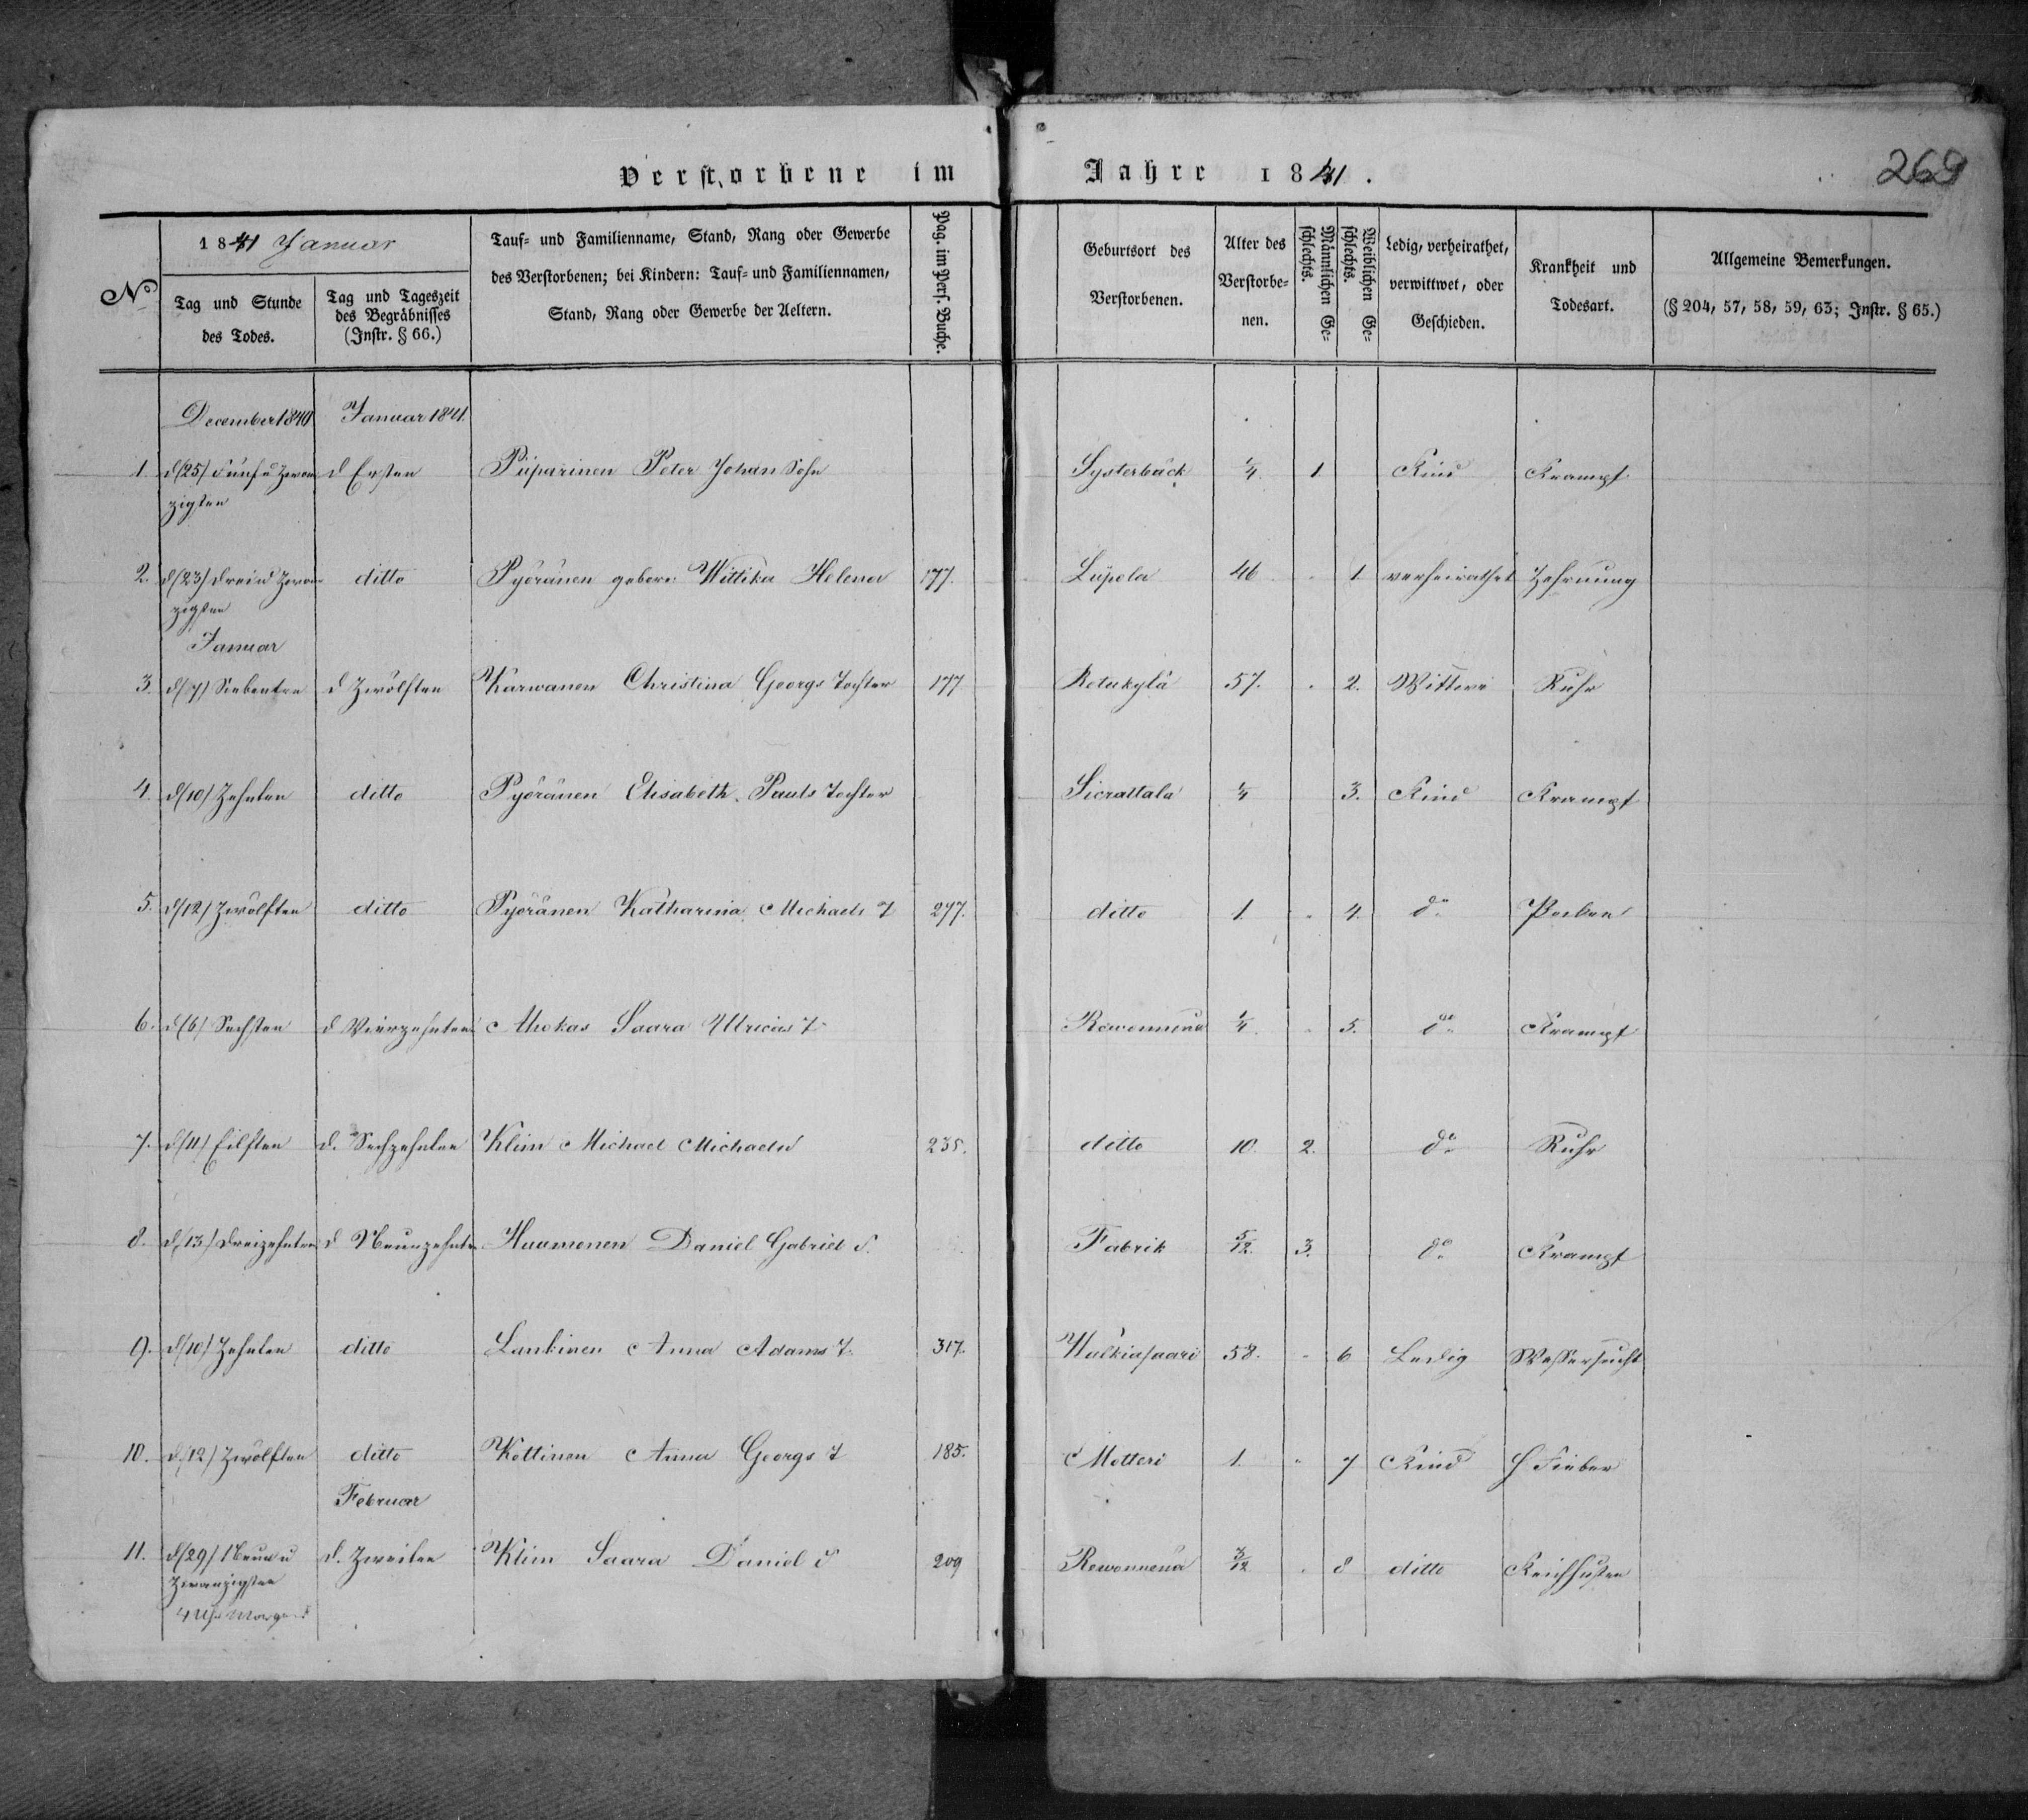 Verstorbene im Jahre 1841.
269
No
1841 Januar
Tag und Stunde des Todes.
Tag und Tageszeit des Begräbnisses (Instr. § 66.)
Tauf= und Familienname, Stand, Rang oder Gewerbe des Verstorbenen; bei Kindern: Tauf= und Familiennamen, Stand, Rang oder Gewerbe der Aeltern.
Pag. im Pers. Buche.
Geburtsort des Verstorbenen.
Alter des Verstorbe=nen.
Männlichen Ge=schlechts.
Weiblichen Ge=schlechts.
Ledig, verheirathet, verwittwet, oder Geschieden.
Krankheit und Todesart.
Allgemeine Bemerkungen. (§ 204, 57, 58, 59, 63; Instr. § 65.)
December 1840 Januar 1841.
1. d (25) Fünf u Zwanzigsten d Ersten Piiparinen Peter Johan Sohn Systerbäck 1/4. 1 Kind Krampf
2. d (23) Drei u Zwanzigsten ditto Pyöränen geboren Wittika Helena 177. Lüpola 46 1 verheirathet Zehrung
Januar
3. d (7) Siebenten d Zwölften Karwanen Christina Georgs Tochter 177 Retukylä 57. 2. Wittwe Ruhr
4. d (10) Zehnten ditto Pyöränen Elisabeth Pauls Tochter Sicrattala 1/4 3. Kind Krampf
5. d (12) Zwölften ditto Pyöränen Katharina Michaels T 277. ditto 1. 4. do Pocken
6. d (6) Sechsten d Vierzehnten Ahokas Saara Ulricas T Rewonnenä 1/4. 5. do Krampf
7. d (11) Eilften d. Sechzehnten Klim Michael Michaels 235. ditto 10. 2. do Ruhr
8. d (13) Dreizehnten d Neunzehnten Huumonen Daniel Gabriel S. Fabrik 5/12. 3. do Krampf
9. d (10) Zehnten ditto Lankinen Anna Adams T. 317. Walkiasaari 58. 6 Ledig Wassersucht
10. d (12) Zwölften ditto Kottinen Anna Georgs T 185. Motteri 1. 7 Kind Fieber
Februar
11. d (29) Neun u Zwanzigsten 4 Uhr Morgens d. Zweiten Klim Saara Daniel 209 Rewonnenä 3/12 8 ditto Keichhusten